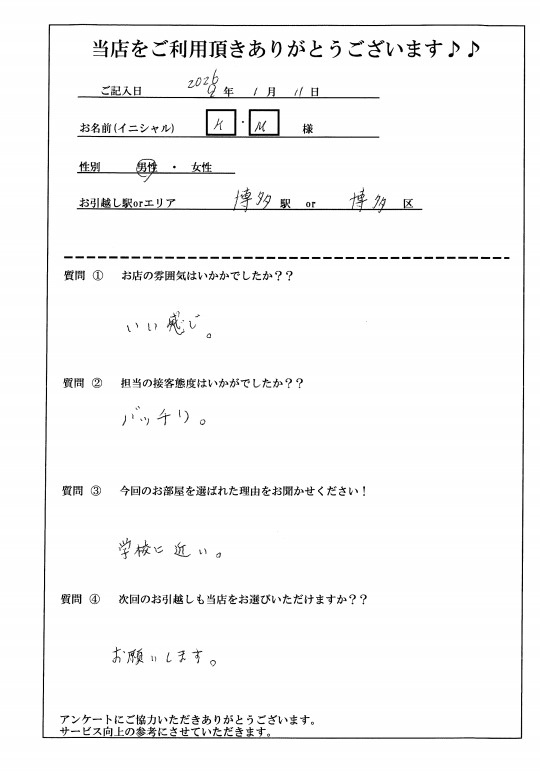 当店をご利用頂きありがとうございます♪♪
ご記入日 2026年 1月 11日
お名前(イニシャル) K・M 様
性別 男性 ・ 女性
お引越し駅orエリア 博多 駅 or 博多 区
質問 ① お店の雰囲気はいかかでしたか??
いい感じ。
質問 ② 担当の接客態度はいかがでしたか??
バッチリ。
質問 ③ 今回のお部屋を選ばれた理由をお聞かせください!
学校に近い。
質問 ④ 次回のお引越しも当店をお選びいただけますか??
お願いします。
アンケートにご協力いただきありがとうございます。
サービス向上の参考にさせていただきます。